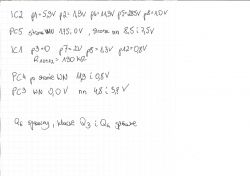 IC2 p1=5,9V p2=1,9V p4=1,9V p5=2,85V p8=1,0V
PC5 strona WN 115,0V, strona nn 8,5 i 7,5V
IC1 p3=0 p7=2V p8=1,3V p12=0,8V
R = 190 kΩ
PC4 po stronie WN 1,9 i 0,8V
PC3 WN 0,0V nn 4,8 i 5,8V
Q6 sprawny, Q3 i Q4 sprawne